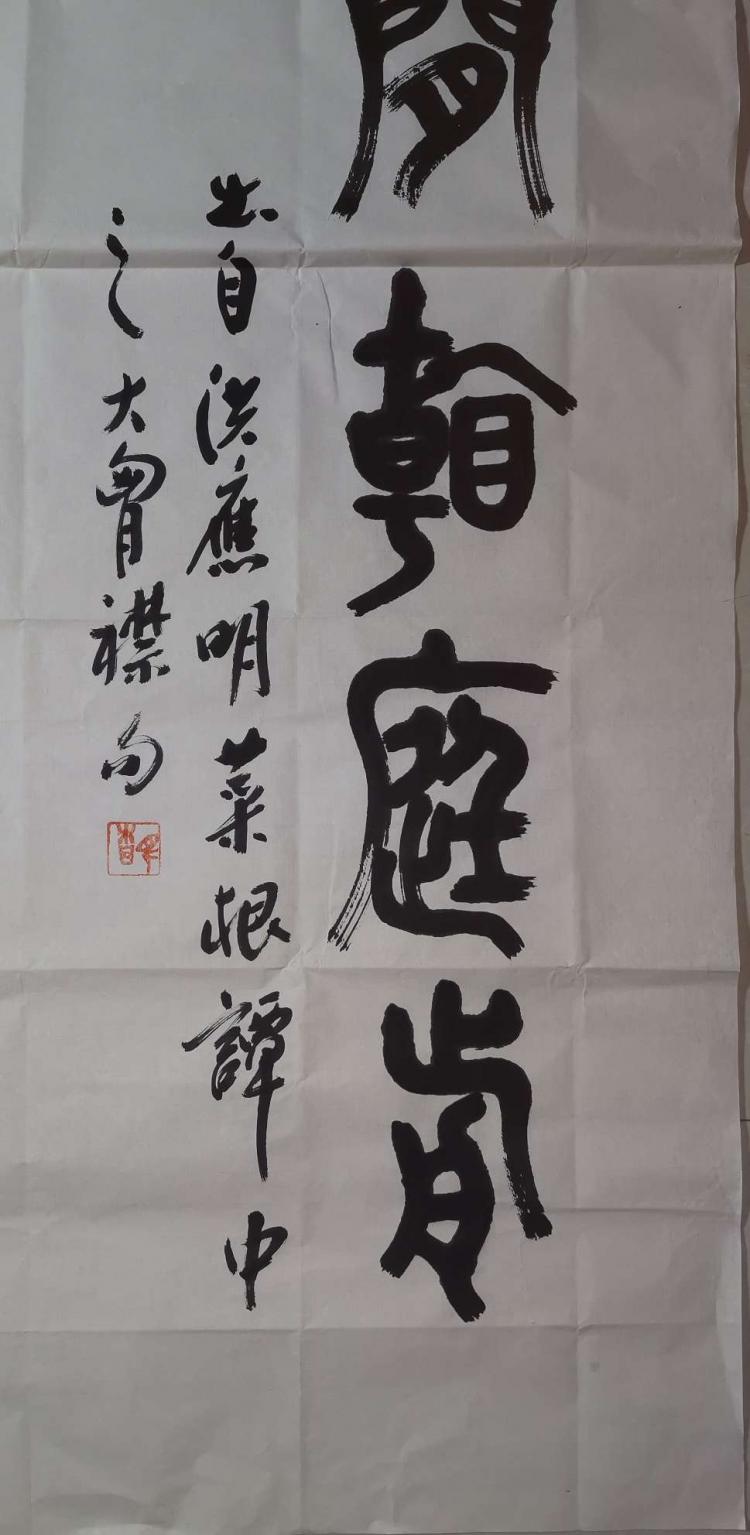 閒看庭前
出自洪應明菜根譚中
之大胷襟句